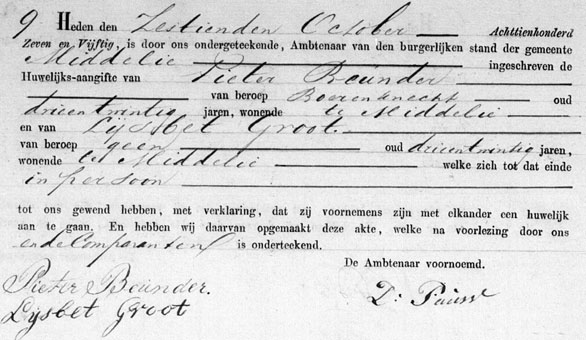 9 Heden den Zestienden October Achttienhonderd
Zeven en Vijftig, is door ons ondergeteekende, Ambtenaar van den burgerlijken stand der gemeente
Middelie ingeschreven de
Huwelijks-aangifte van Pieter Beunder
van beroep Boerenknecht oud
drieentwintig jaren, wonende te Middelie
en van Lijsbet Groot
van beroep geen oud drieentwintig jaren,
wonende te Middelie welke zich tot dat einde
in persoon
tot ons gewend hebben, met verklaring, dat zij voornemens zijn met elkander een huwelijk
aan te gaan. En hebben wij daarvan opgemaakt deze akte, welke na voorlezing door ons
en de Comparanten is onderteekend.
De Ambtenaar voornoemd.
Pieter Beunder.
Lijsbet Groot
D: Pauw